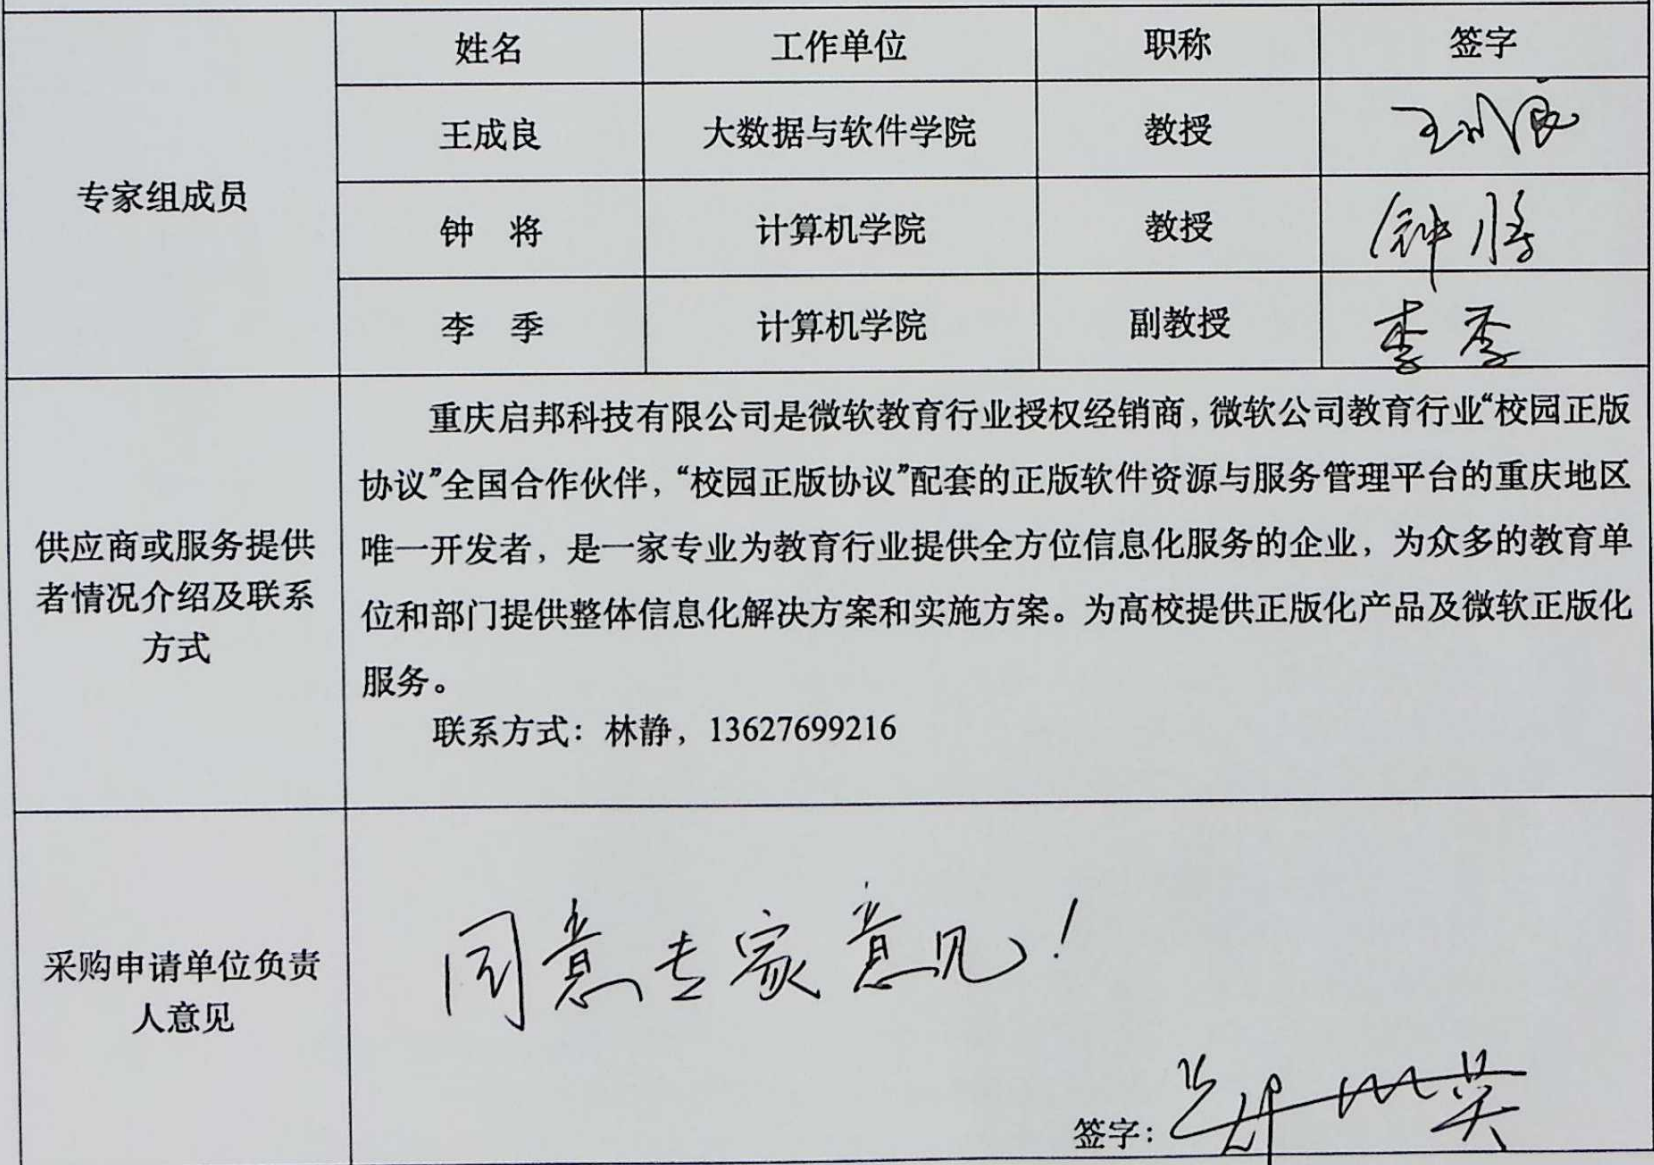 专家组成员
姓名 工作单位 职称 签字
王成良 大数据与软件学院 教授 王成良
钟 将 计算机学院 教授 钟将
李 季 计算机学院 副教授 李季
供应商或服务提供
者情况介绍及联系
方式
重庆启邦科技有限公司是微软教育行业授权经销商，微软公司教育行业“校园正版
协议”全国合作伙伴，“校园正版协议”配套的正版软件资源与服务管理平台的重庆地区
唯一开发者，是一家专业为教育行业提供全方位信息化服务的企业，为众多的教育单
位和部门提供整体信息化解决方案和实施方案。为高校提供正版化产品及微软正版化
服务。
联系方式：林静，13627699216
采购申请单位负责
人意见
同意专家意见！
签字：